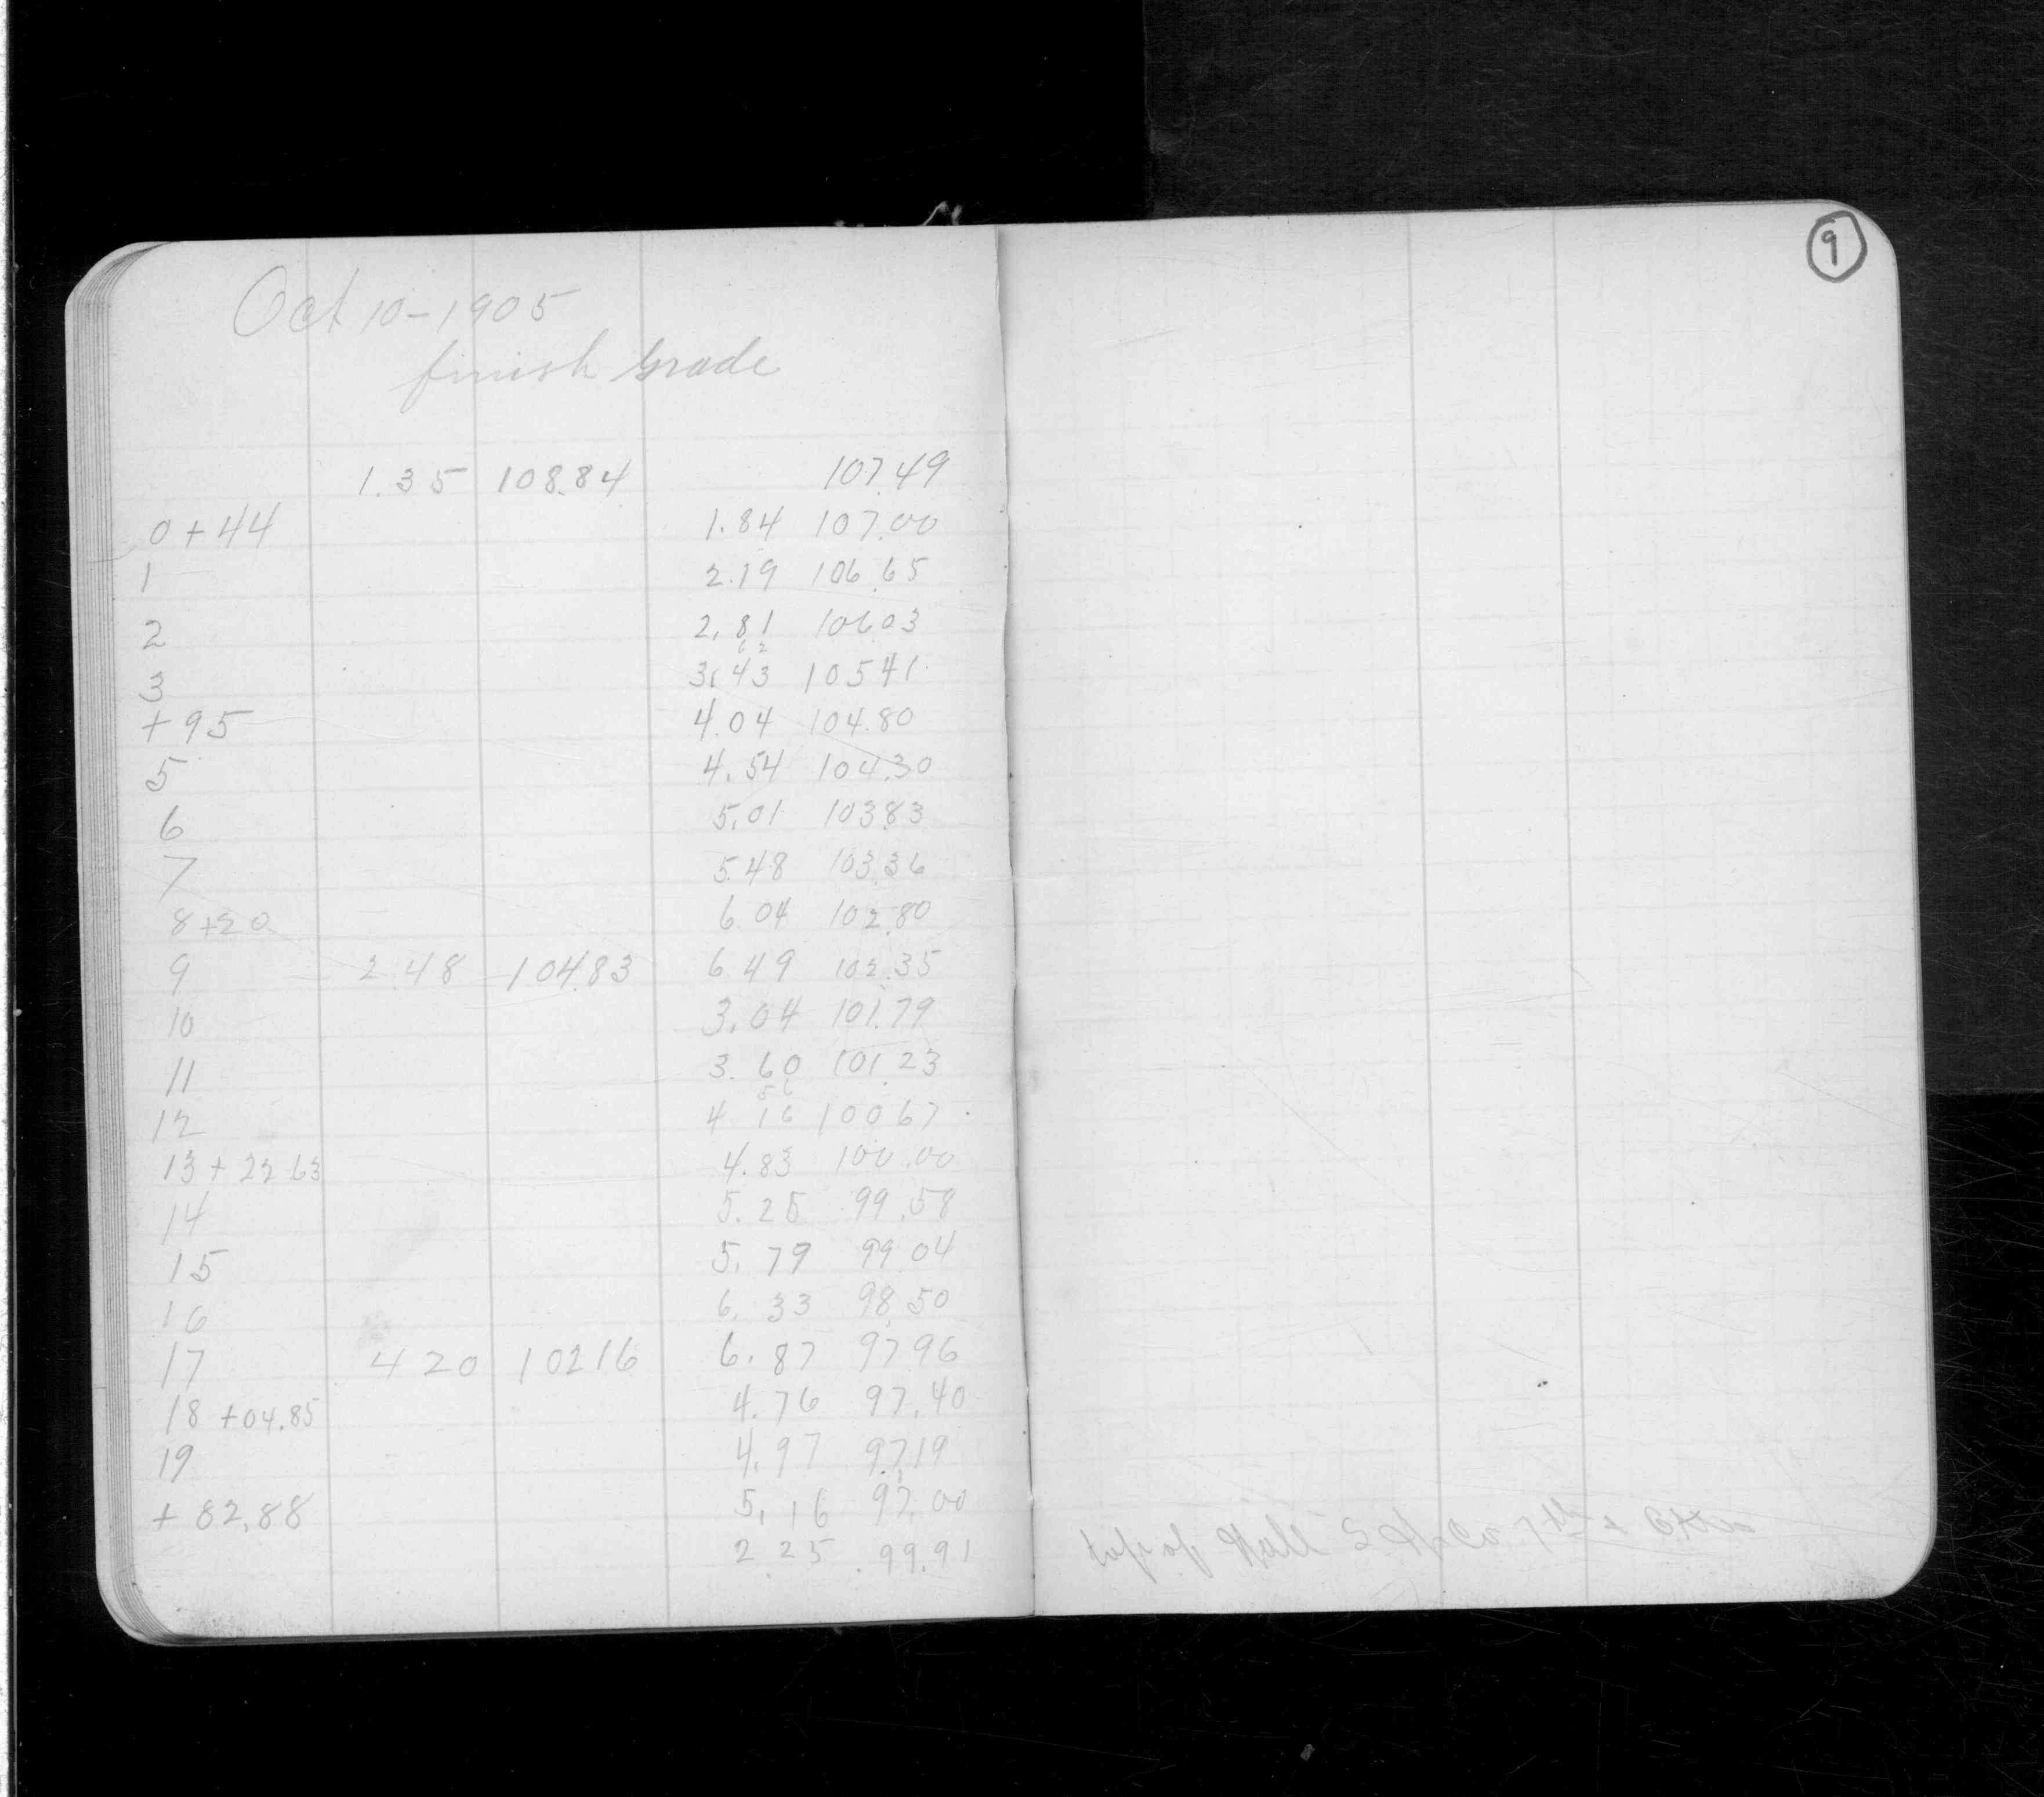 9
Oct 10-1905
finish Grade
1.35 108.84 107.49
0+44 1.84 107.00
1 2.19 106.65
2 2.81 106.03
62
3 3.43 105 41
+95 4.04 104.80
5 4.54 104.30
6 5.01 103.83
7 5.48 103.36
8+20 6 04 102.80
9 2.48 104.83 6 49 102.35
10 3.04 101.79
11 3.60 101.23
56
12 4 16 100 67
13+22 63 4.83 100.00
14 5.25 99.58
15 5.79 99 04
16 6.33 98.50
17 4 20 102 16 6.87 97 96
18 +04.85 4.76 97.40
19 4.97 97.19
+ 82.88 5.16 97.00
2.25 99.91 top of Wall 7th +